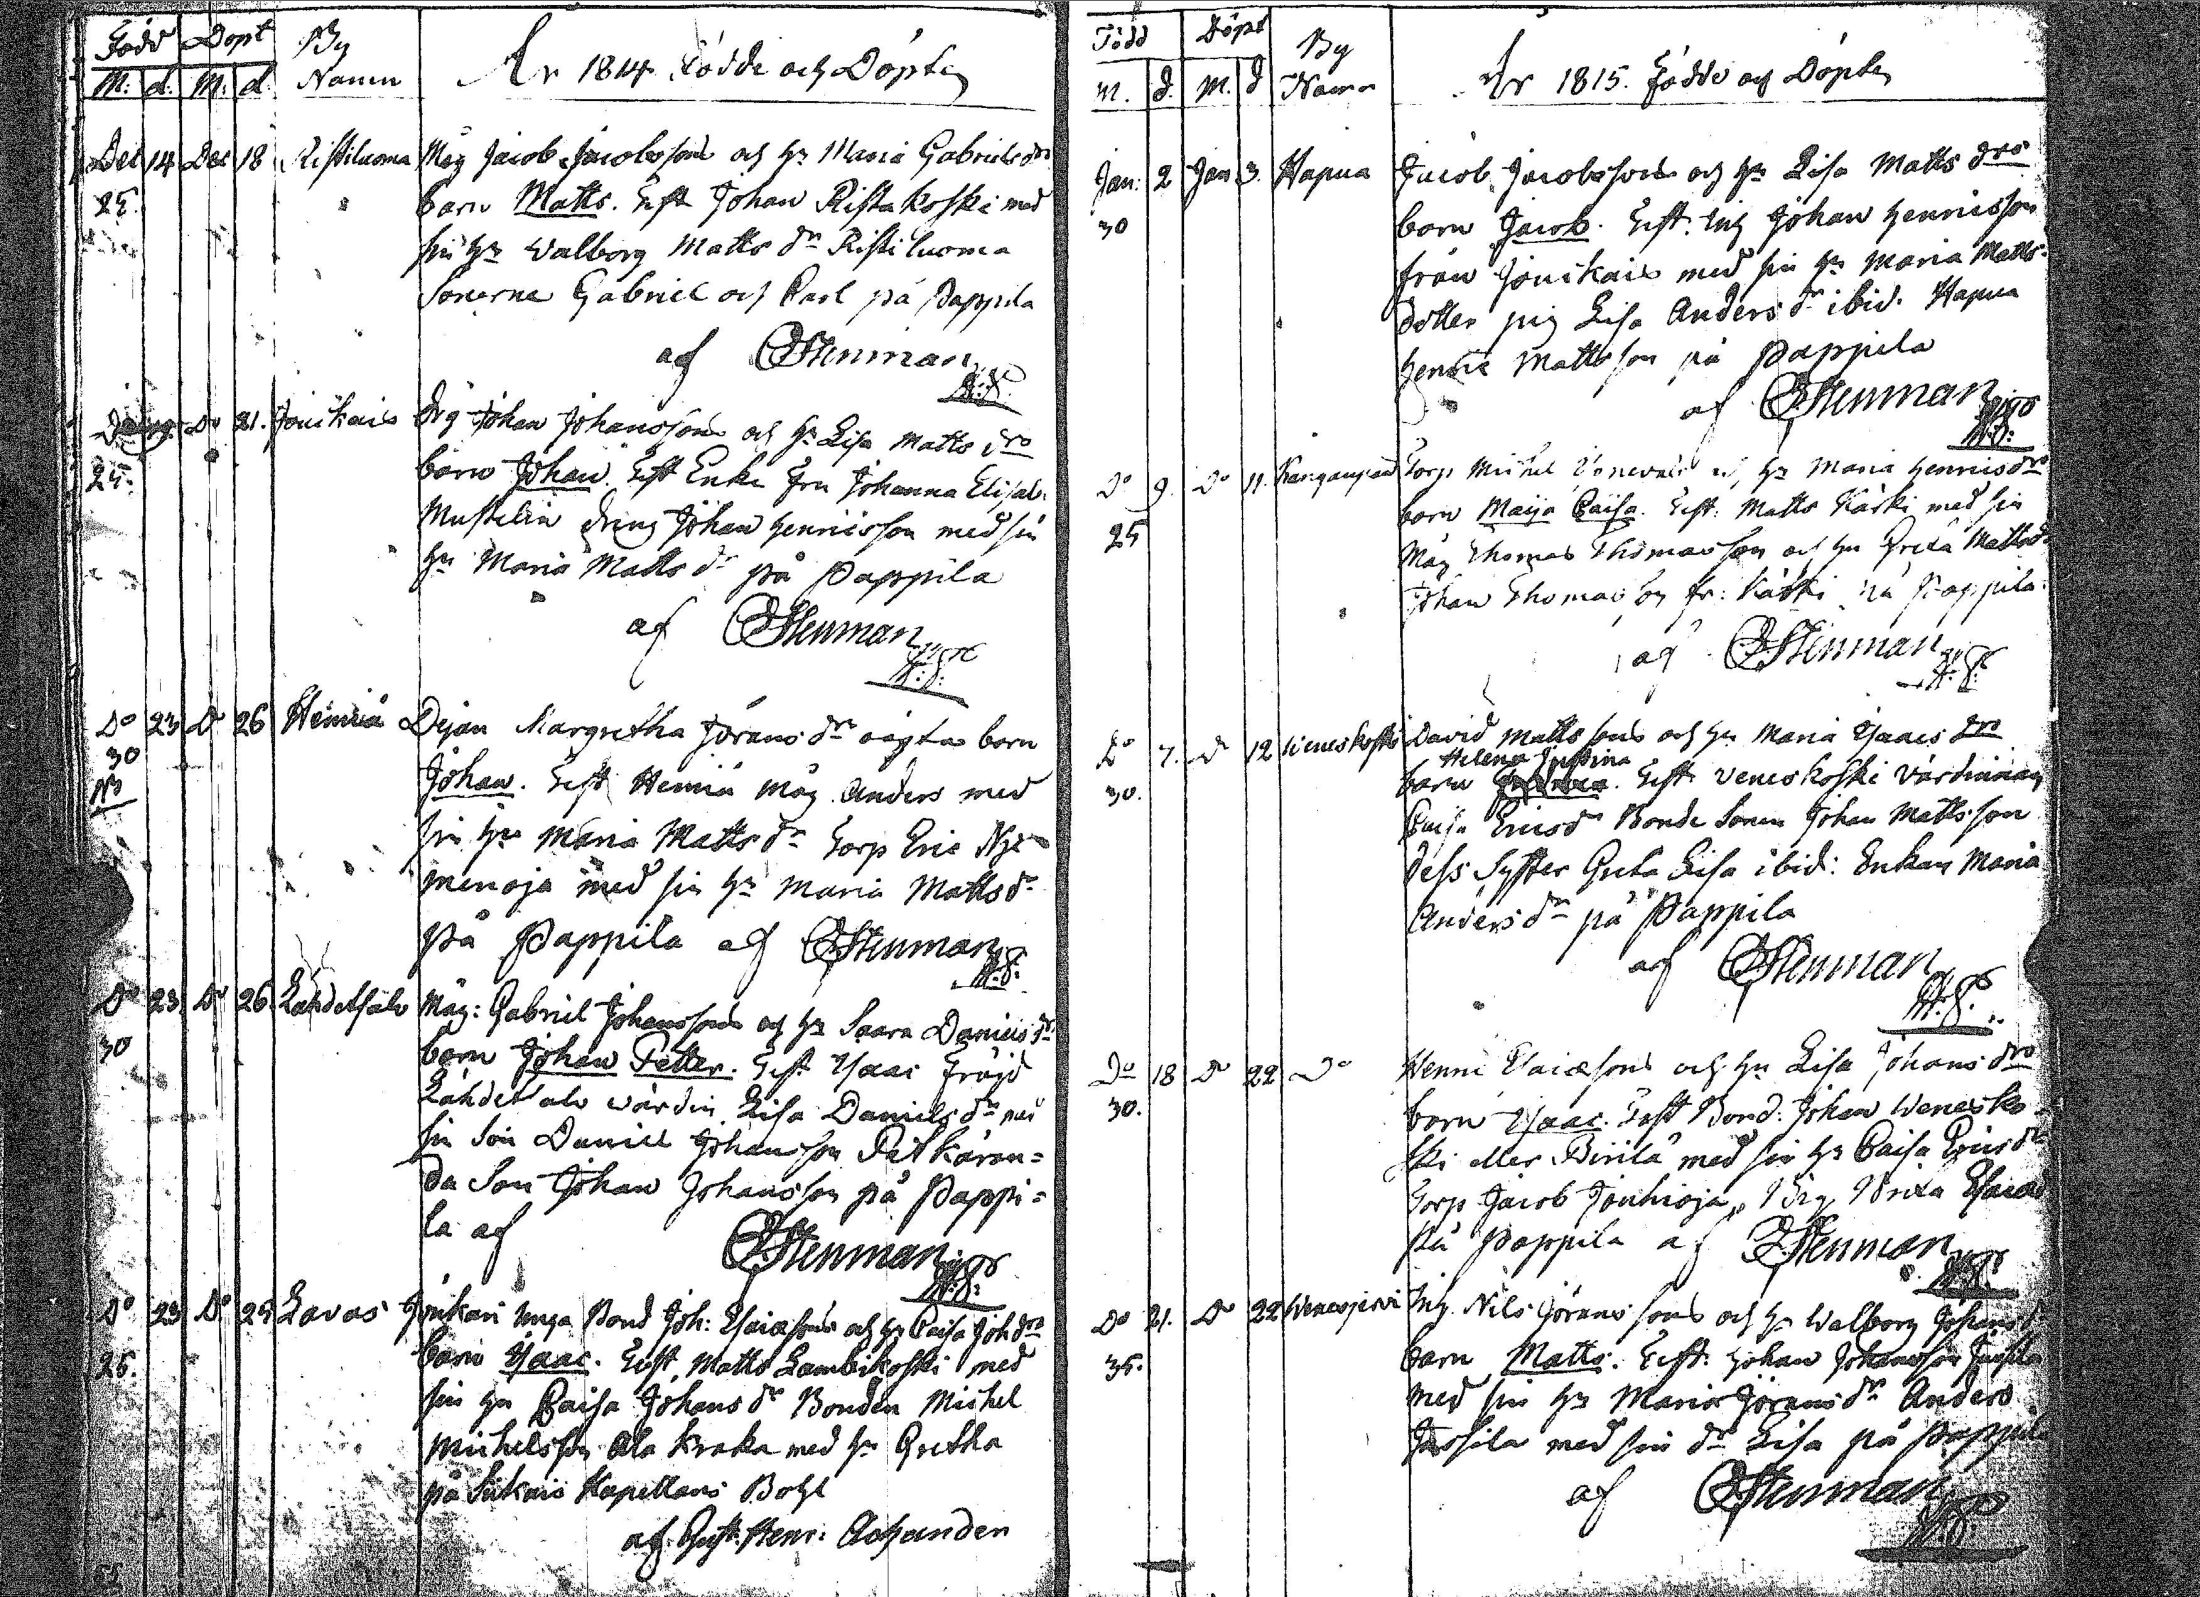 Född Döpt By
M: d: M: d: Namn År 1814 Födde och Döpte
Dec 14 Dec 18 Ristiluoma Måg Jacob Jacobssons och h:u Maria Gabrielsdrs
25. barn Matts. Test Johan Ristakoski med
sin h:u Walborg Matts dr Ristiluoma
Sönerne Gabriel och Carl på Pappila
af Stenman
D:o 21. Jouikais Drg Johan Johanssons och h:u Lisa Matts drs
25. barn Johan. Test Enke Fru Johanna Elisab.
Mustelin dreng Johan Henricsson med sin
h:u Maria Matts dr på Pappila
af Stenman
D:o 23 D:o 26 Heiniä Dejan Margretha Jöransdrs oägta barn
30 Johan. Test Heiniä måg Anders med
sin h:u Maria Matts dr Torp Eric
menoja med sin h:u Maria Matts dr
på Pappila af Stenman
D:o 23 D:o 26 Lähdetalo Måg: Gabriel Johanssons och h:u Saara Daniels dr
30 barn Johan Petter. Test Isaac Fröjd
Lähdetalo värdin Lisa Daniels dr med
sin Son Daniel Johansson Pitkäran=
da Son Johan Johansson på Pappi=
la af Stenman
D:o 23 D:o 25 Lavas Jonkari unga Bond Joh: Esaiæsons och h:u Caisa Joh drs
25. barn Isaac. Test, Matts Lambikoski med
sin h:u Caisa Johans dr Bonden Michel
Michelsson Ala Kraka med h:u Gretha
på Siikais Kapellans Bohl
af Gust. Henr: Achander
Född Döpt By
M. d. M. d Namn År 1815. Födde och Döpte
Jan: 2 Jan 3. Hapua Jacob Jacobssons och h:u Lisa Matts drs
30 barn Jacob. Test. Inh Johan Henricsson
från Jouikais med sin h:u Maria Matts-
dotter pig Lisa Anders dr ibid. Hapua
Henric Mattsson på Pappila
af Stenman
D:o 9. D:o 11. Kangaspää Torp Michel och h:u Maria Henricsdrs
25 barn Maija Caisa. Test: Matts Kaski med sin
Måg Thomas Thomasson och h:u Greta Mattsdr
Johan Thomasson fr: Kaski på Pappila
af Stenman
D:o 7. D:o 12 Weneskoski David Mattssons och h:u Maria Isaacs drs
Helena Justina
30. barn Test Veneskoski Värdinnan
Caisa Ericsdr Bonde Sonen Johan Mattsson
dess Syster Greta Lisa ibid: Enkan Maria
Anders dr på Pappila
af Stenman
D:o 18 D:o 22 D:o Henric Esaiæsons och h:u Lisa Johans drs
30. barn Isaac. Test Bond: Johan Wenesko
ski eller Biirilä med sin h:u Caisa Erics dr
Torp Jacob Jouhioja, Pig Brita Esaiæ
På Pappila af Stenman
D:o 21. D:o 22 Wenesjärvi Inh. Nils Jöranssons och h:u Walborg Johans dr
35. barn Matts. Test: Johan Johansson Jussila
med sin h:u Maria Jörans dr Anders
Jussila med sin dr Lisa på Pappila
af Stenman